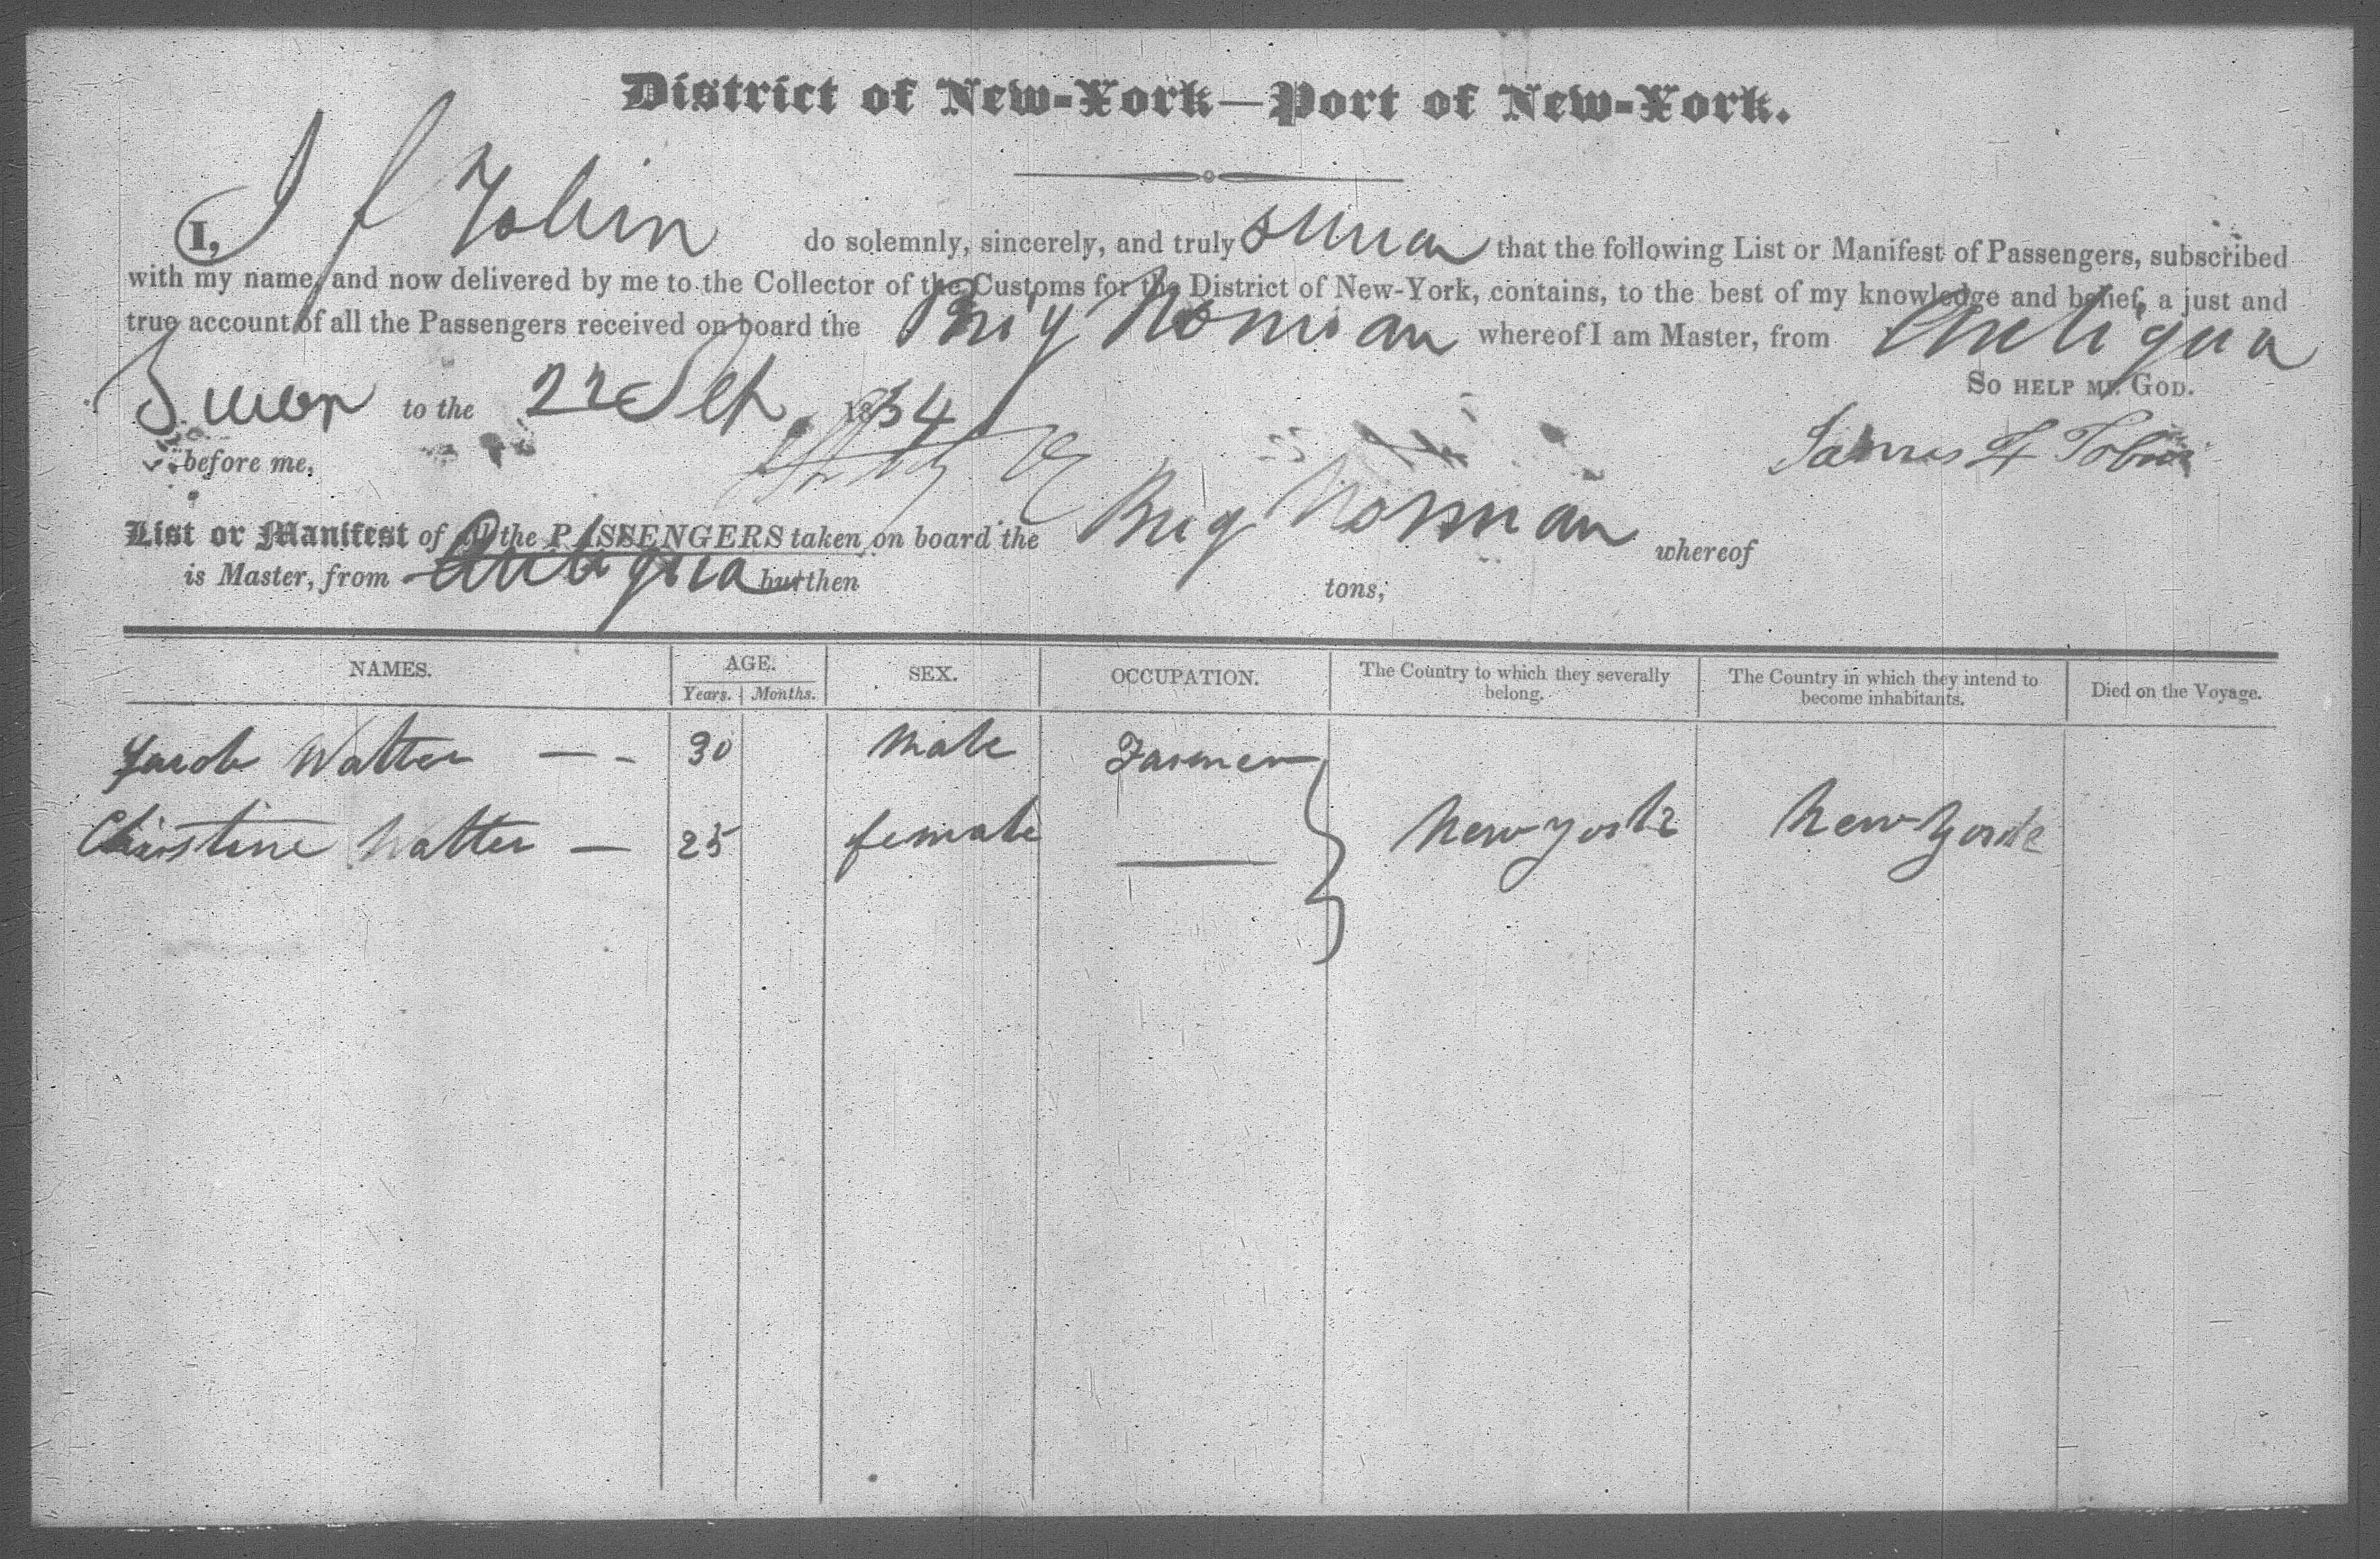 District of New-York—Port of New-York.
I, J F Tobin do solemnly, sincerely, and truly swear that the following List or Manifest of Passengers, subscribed
with my name, and now delivered by me to the Collector of the Customs for the District of New-York, contains, to the best of my knowledge and belief, a just and
true account of all the Passengers received on board the Brig Norman whereof I am Master, from Antigua
Sworn to the 22 Sep 1834 So help me God.
before me, James F Tobin
List or Manifest of all the PASSENGERS taken on board the Brig Norman whereof
is Master, from Antigua burthen tons,
NAMES. AGE. SEX. OCCUPATION. The Country to which they severally belong. The Country in which they intend to become inhabitants. Died on the Voyage.
Years. Months.
Jacob Walter — - 30 Male Farmer
Christine Walter — 25 female — New York New York